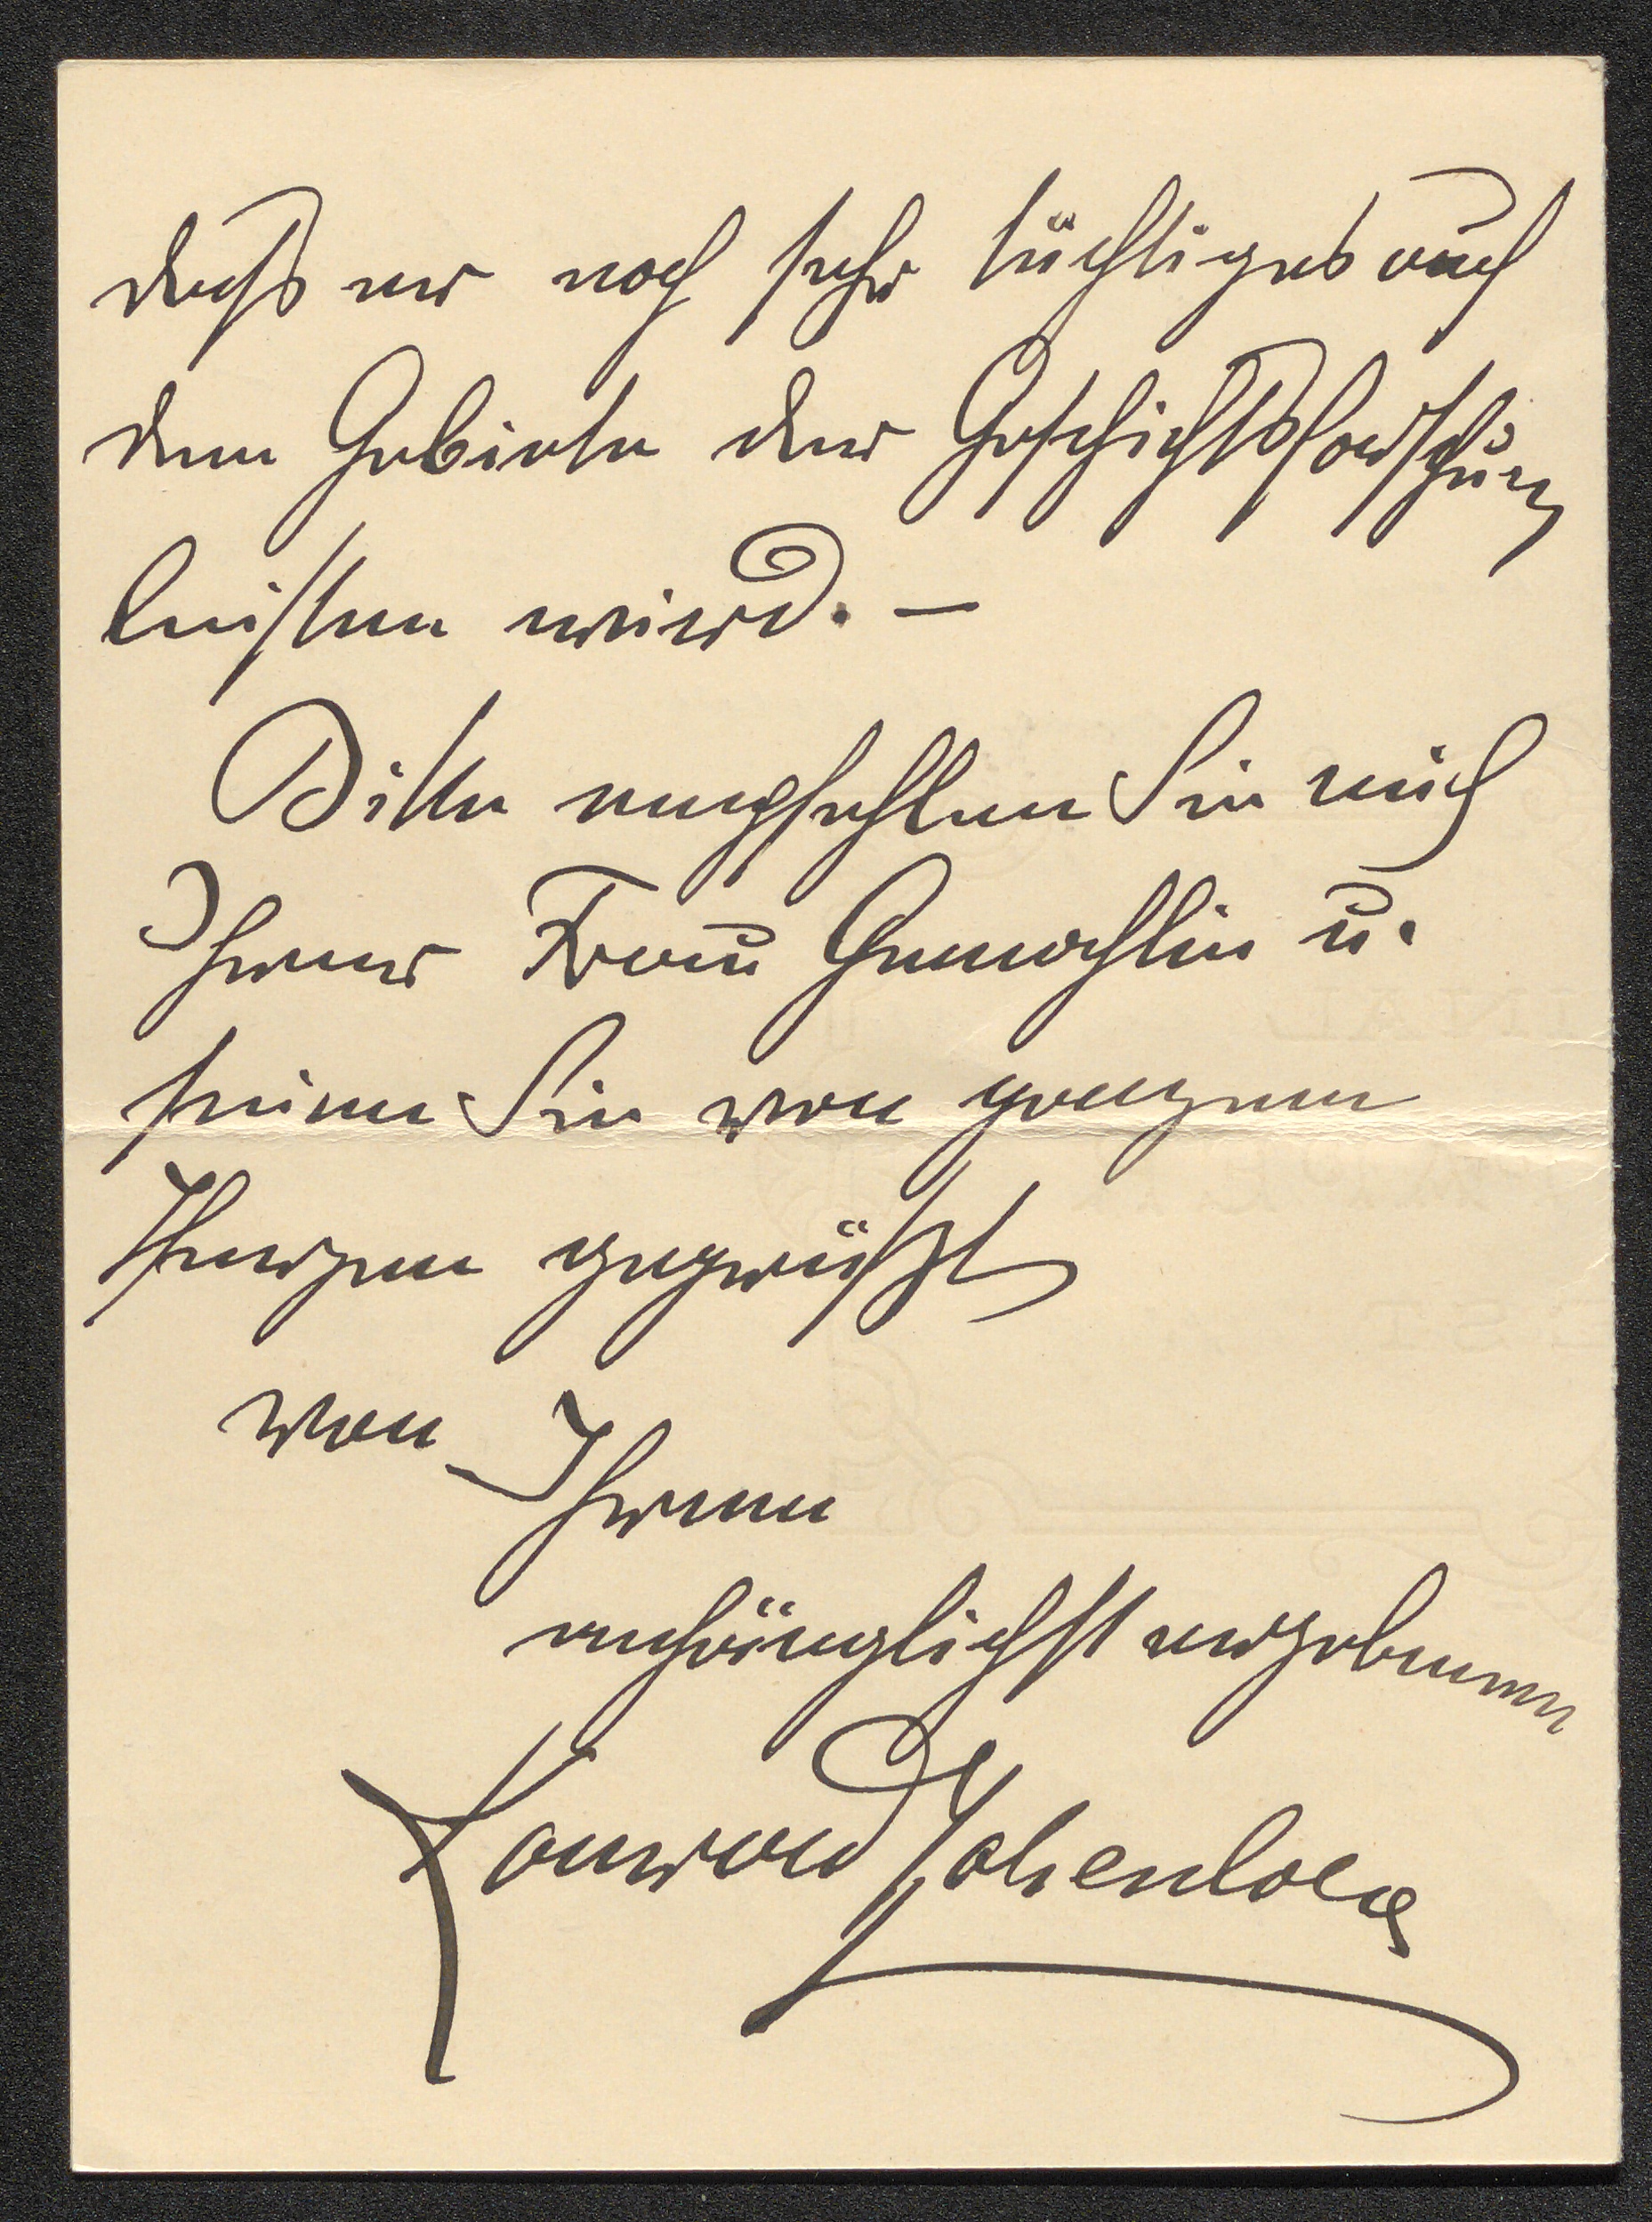 daß er noch sehr tüchtiges auf
dem Gebiete der Geschichtsforschung
leisten wird. –
Bitte empfehlen Sie mich
Ihrer Frau Gemahlin u.
seien Sie von ganzem
Herzen gegrüßt
von Ihrem
anhänglichst ergebenen
Konrad Hohenlohe